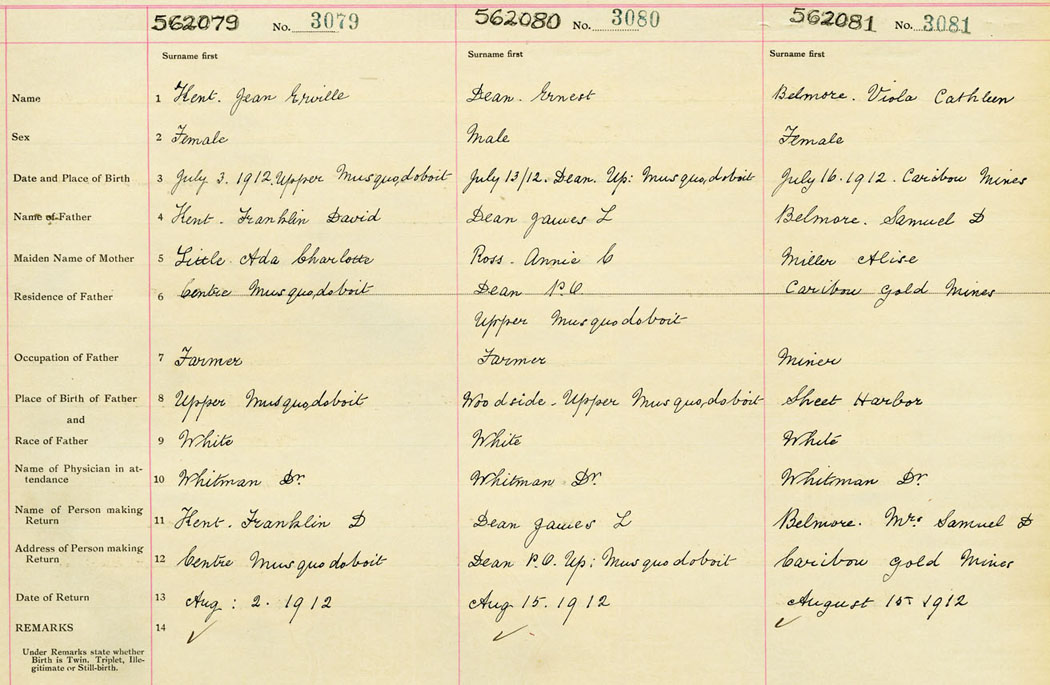 562079 No. 3079 562080 No. 3080 562081 No. 3081
Surname first Surname first Surname first
Name 1 Kent. Jean Erville Dean. Ernest Belmore. Viola Cathleen
Sex 2 Female Male Female
Date and Place of Birth 3 July 3. 1912. Upper Musquodoboit July 13/12. Dean. Up: Musquodoboit July 16. 1912. Caribou Mines
Name of Father 4 Kent. Franklin David Dean James L Belmore. Samuel D
Maiden Name of Mother 5 Little. Ada Charlotte Ross. Annie C Miller Alise
Residence of Father 6 Centre Musquodoboit Dean P.O Caribou Gold Mines
Upper Musquodoboit
Occupation of Father 7 Farmer Farmer Miner
Place of Birth of Father 8 Upper Musquodoboit Woodside. Upper Musquodoboit Sheet Harbor
and
Race of Father 9 White White White
Name of Physician in at-
tendance 10 Whitman Dr. Whitman Dr. Whitman Dr.
Name of Person making
Return 11 Kent. Franklin D Dean James L Belmore. Mrs Samuel D
Address of Person making
Return 12 Centre Musquodoboit Dean P.O. Up: Musquodoboit Caribou Gold Mines
Date of Return 13 Aug: 2. 1912 Aug 15. 1912 August 15 1912
REMARKS 14 ✓ ✓ ✓
Under Remarks state whether
Birth is Twin. Triplet, Ille-
gitimate or Still-birth.